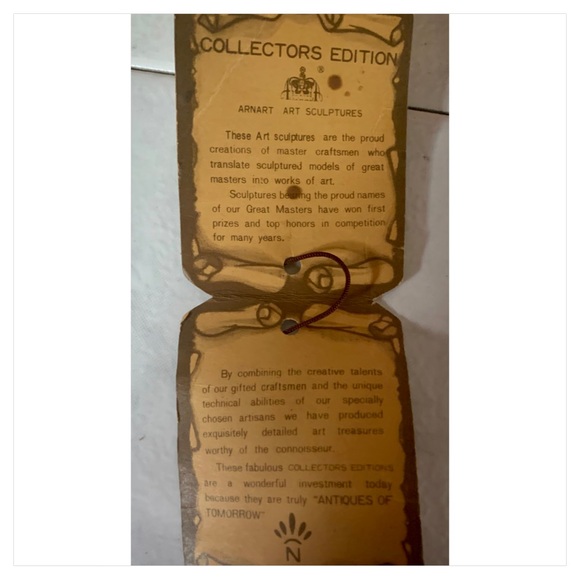 COLLECTORS EDITION
®
ARNART ART SCULPTURES
These Art sculptures are the proud
creations of master craftsmen who
translate sculptured models of great
masters into works of art.
Sculptures bearing the proud names
of our Great Masters have won first
prizes and top honors in competition
for many years.
By combining the creative talents
of our gifted craftsmen and the unique
technical abilities of our specially
chosen artisans we have produced
exquisitely detailed art treasures
worthy of the connoisseur.
These fabulous COLLECTORS EDITIONS
are a wonderful investment today
because they are truly "ANTIQUES OF
TOMORROW"
N